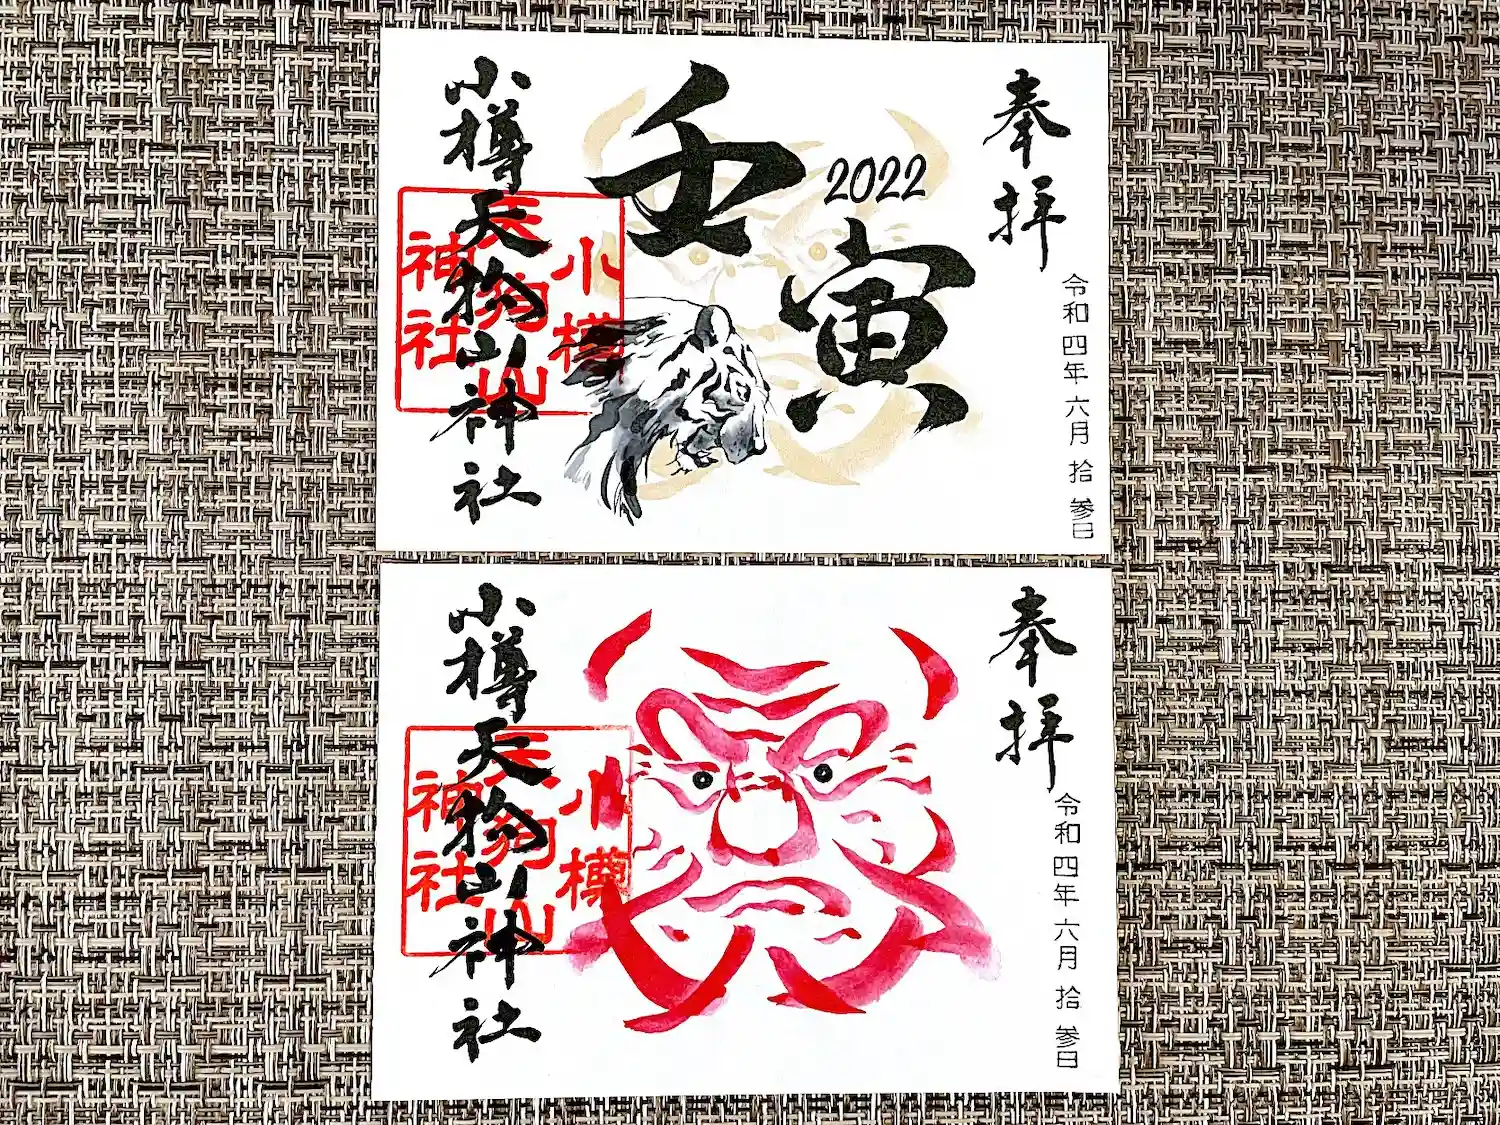 奉拝
令和四年六月拾参日
2022
壬寅
小樽天狗山神社
小樽
天狗山
神社
奉拝
令和四年六月拾参日
小樽天狗山神社
小樽
天狗山
神社